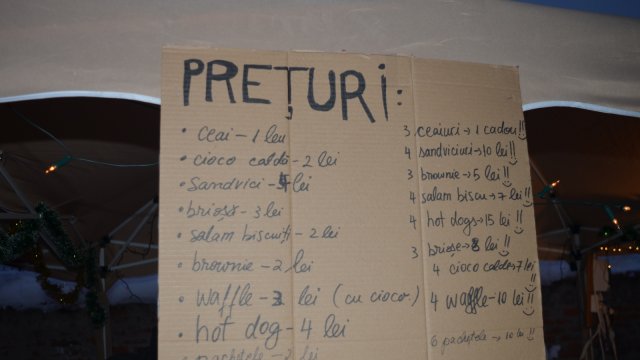 PREȚURI:
• ceai – 1 leu
• cioco caldă – 2 lei
• sandvici – 4 lei
• brioșă – 3 lei
• salam biscuiți – 2 lei
• brownie – 2 lei
• waffle – 3 lei (cu cioco)
• hot dog – 4 lei
pachețele – 2 lei
3 ceaiuri → 1 cadou!!
4 sandviciuri → 10 lei!!
3 brownie → 5 lei!!
4 salam biscu → 7 lei!!
4 hot dogs → 15 lei!!
3 brioșe → 8 lei!!
4 cioco calde → 7 lei!!
4 waffle – 10 lei!!
6 pachețele → 10 lei!!